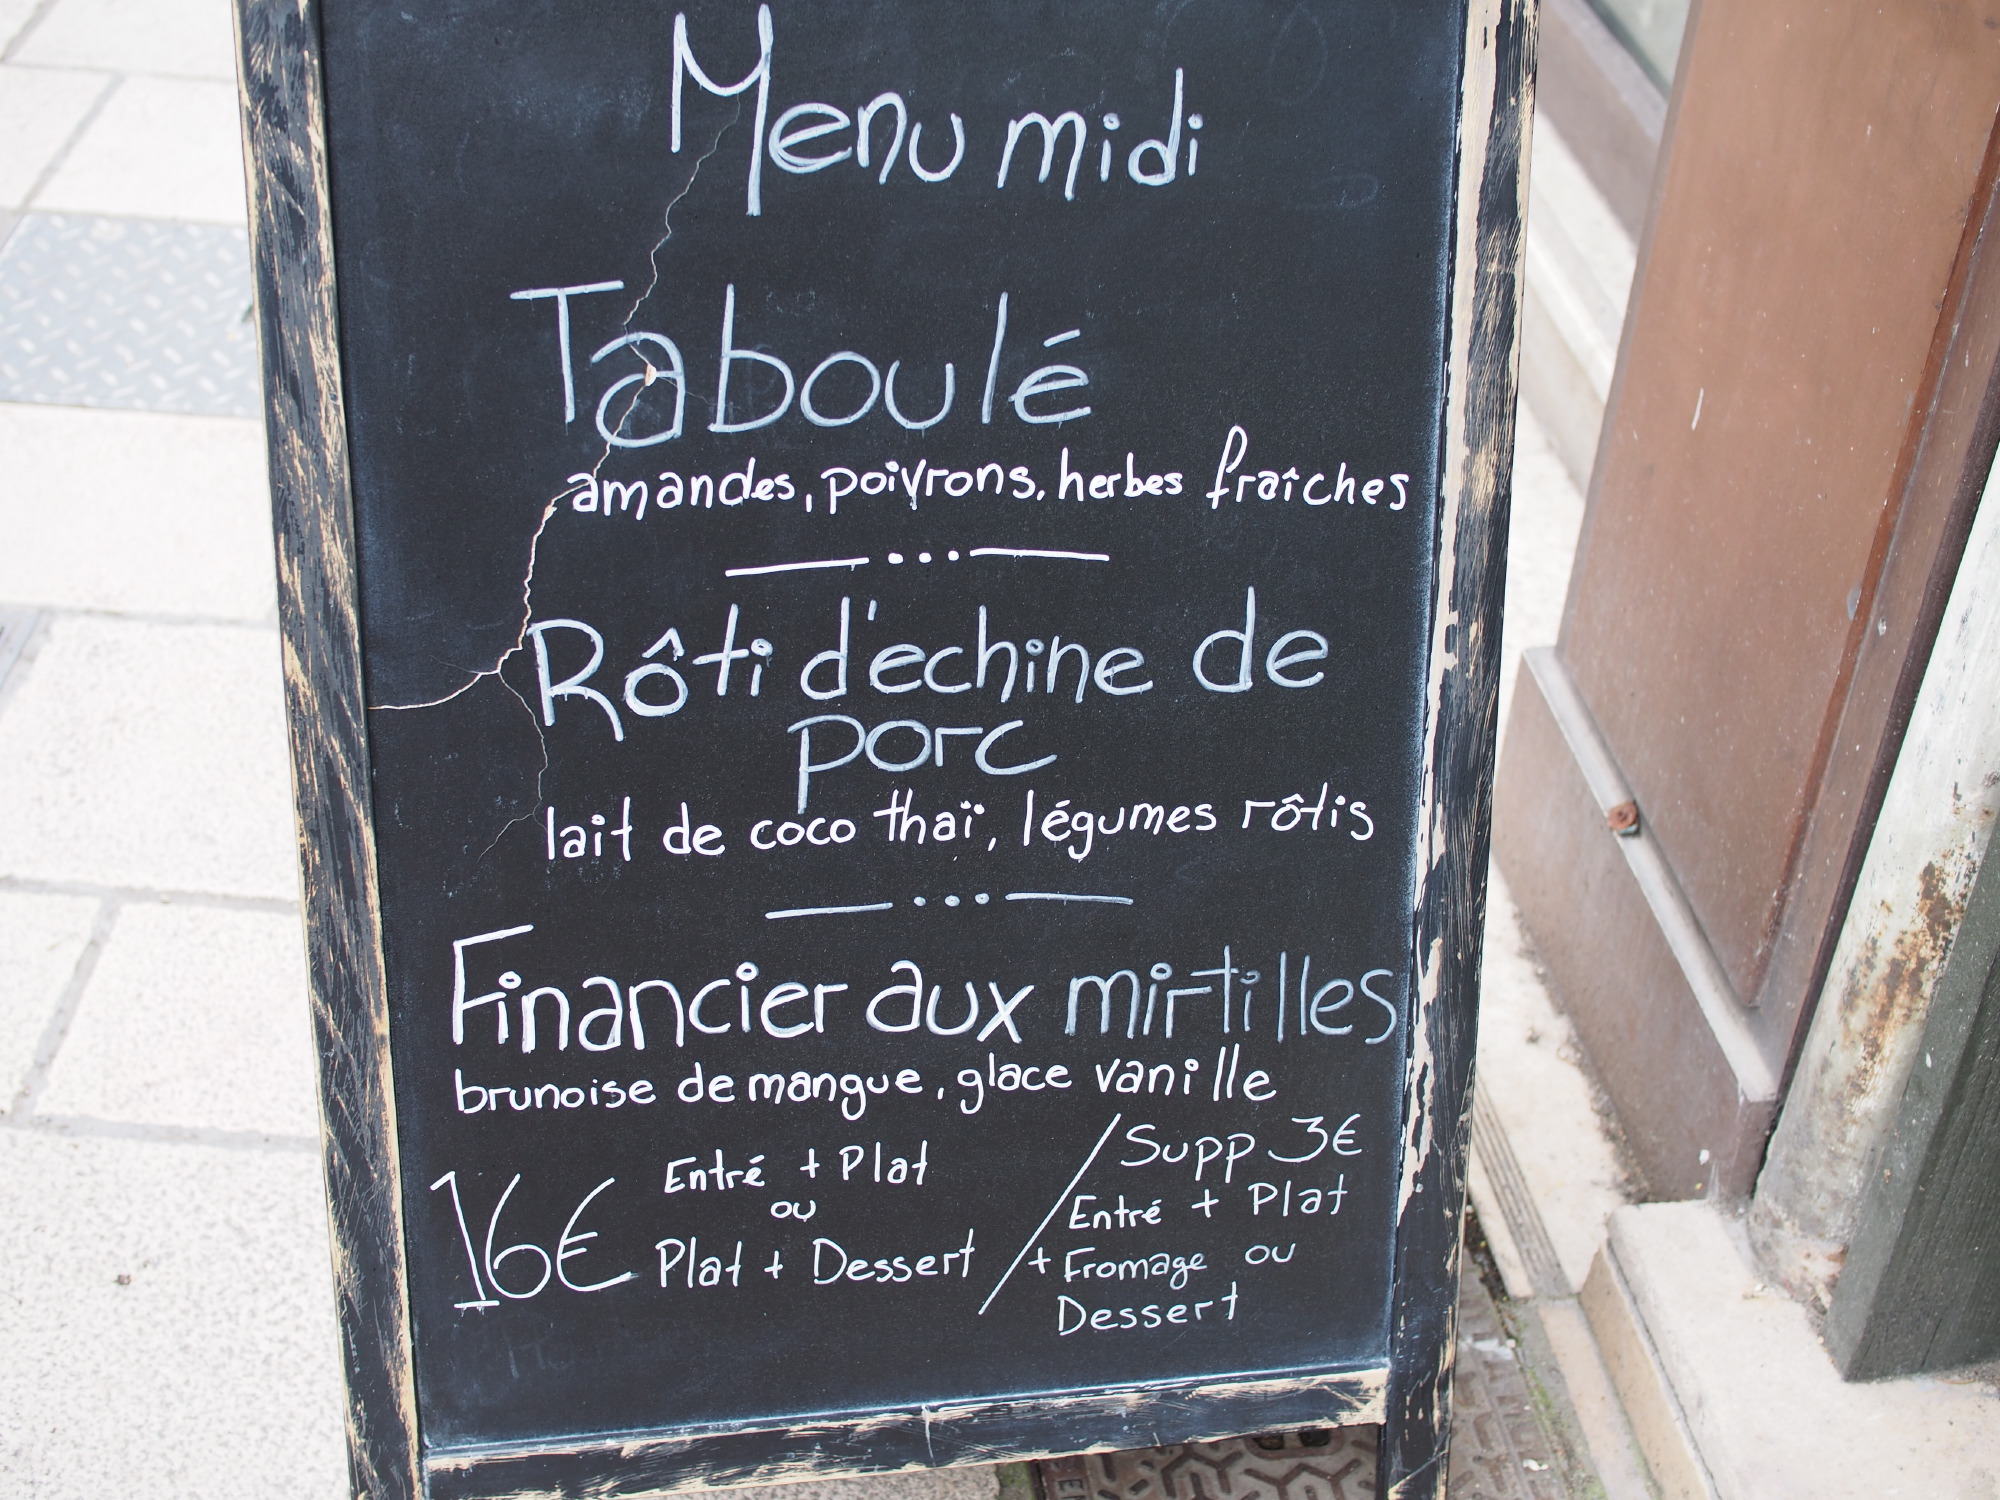 Menu midi
Taboulé
amandes, poivrons, herbes fraîches
Rôti d'echine de
porc
lait de coco thaï, légumes rôtis
Financier aux mirtilles
brunoise de mangue, glace vanille
16€ Entré + Plat
ou
Plat + Dessert
/ Supp 3€
Entré + Plat
+ Fromage ou
Dessert